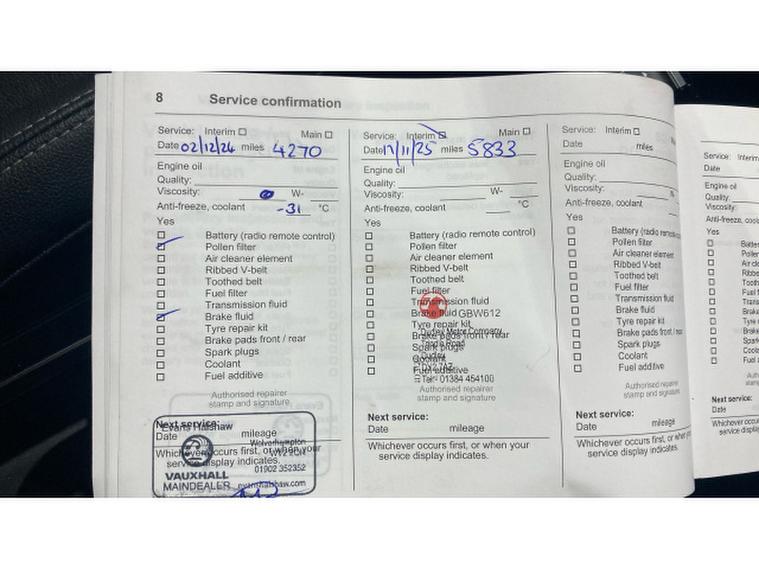 8 Service confirmation
Service: Interim Main
Date 02/12/24 miles 4270
Engine oil
Quality:
Viscosity: W-
Anti-freeze, coolant -31 °C
Yes
Battery (radio remote control)
Pollen filter
Air cleaner element
Ribbed V-belt
Toothed belt
Fuel filter
Transmission fluid
Brake fluid
Tyre repair kit
Brake pads front / rear
Spark plugs
Coolant
Fuel additive
Authorised repairer
stamp and signature
Next service:
Evans Halshaw
Date mileage
Wolverhampton
Whichever occurs first, or when your
service display indicates.
01902 352352
VAUXHALL
MAINDEALER evanshalshaw.com
Service: Interim Main
Date 17/11/25 miles 5833
Engine oil
Quality:
Viscosity: W-
Anti-freeze, coolant °C
Yes
Battery (radio remote control)
Pollen filter
Air cleaner element
Ribbed V-belt
Toothed belt
Fuel filter
Transmission fluid
Brake fluid GBW612
Tyre repair kit
Dudley Motor Company
Brake pads front / rear
Road
Spark plugs
Dudley
Coolant
Fuel additive
Tel: 01384 454100
Authorised repairer
stamp and signature
Next service:
Date mileage
Whichever occurs first, or when your
service display indicates.
Service: Interim
Date miles
Engine oil
Quality:
Viscosity:
Anti-freeze, coolant
Yes
Battery (radio remote
Pollen filter
Air cleaner element
Ribbed V-belt
Toothed belt
Fuel filter
Transmission fluid
Brake fluid
Tyre repair kit
Brake pads front / rear
Spark plugs
Coolant
Fuel additive
Authorised repairer
stamp and signature
Next service:
Date mileage
Whichever occurs first, or when your
service display indicates.
Service: Interim
Date
Engine oil
Quality:
Viscosity:
Anti-freeze,
Yes
Next service:
Date
Whichever occurs
service